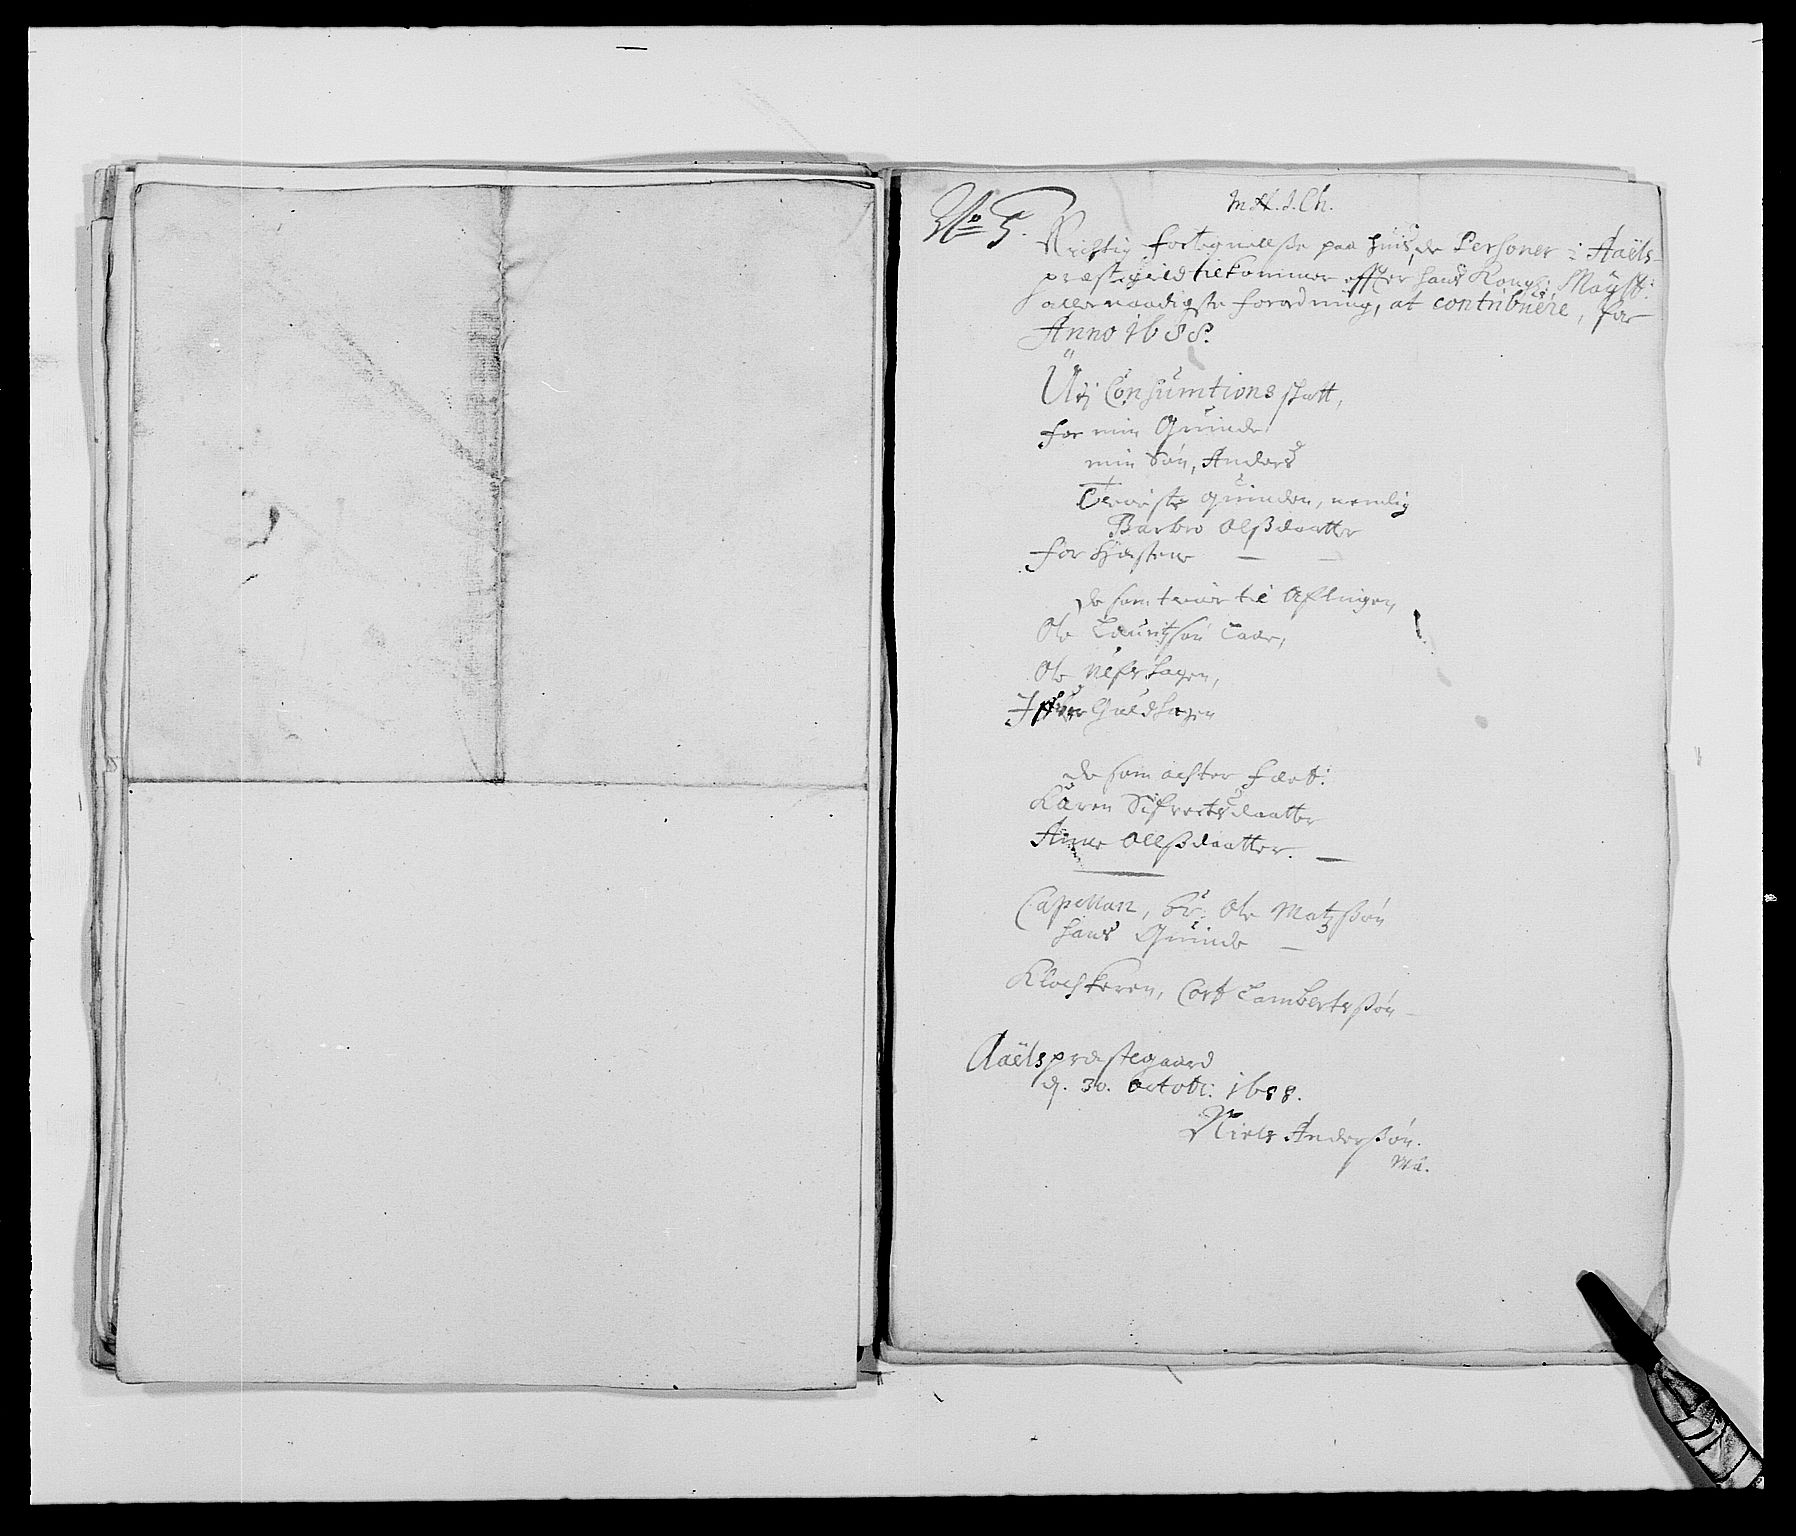 No 5.
M H. J. Ch.
Richtig fortegnelsse paa huis de Personer i Aaëls
præstegield tilkommer effter hans Kongl: Mayst:
allernaadigste forordning, at contribuere, for
Anno 1688.
Udj Consumtions skatt,
for min Quinde
min Søn, Anders
Quinden, nemlig
Barbro Olßdaatter
for Hæsten —
de som tiener til Aflingen,
Ole Lauritzsøn
Ole
Guldhagen
de som achter fæet:
Karen Sifvertsdaatter
Anne Ollßdaatter. —
Capellan, hr. Ole Matzßøn
hans Quinde —
Klockeren, Cort Lambertsßøn —
Aaëls præstegaard
d. 30. Octob: 1688.
Niels Anderßøn.